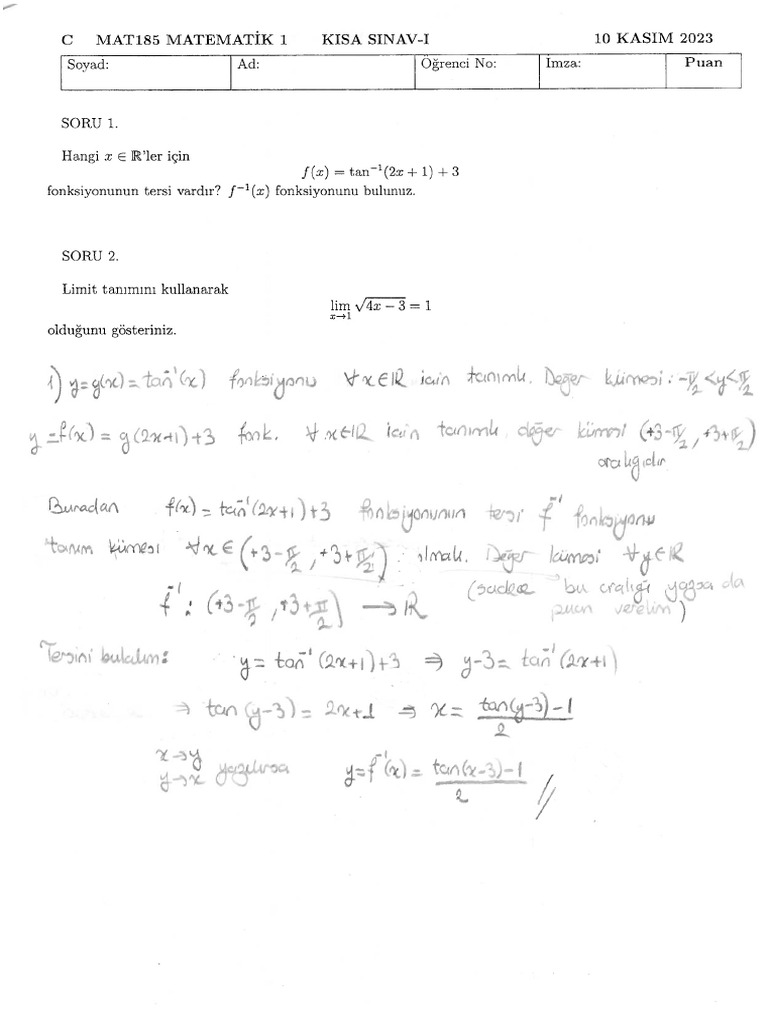 C MAT185 MATEMATİK 1 KISA SINAV-I 10 KASIM 2023
Soyad: Ad: Öğrenci No: İmza: Puan
SORU 1.
Hangi x ∈ ℝ'ler için
f(x) = tan⁻¹(2x + 1) + 3
fonksiyonunun tersi vardır? f⁻¹(x) fonksiyonunu bulunuz.
SORU 2.
Limit tanımını kullanarak
lim x→1 √(4x − 3) = 1
olduğunu gösteriniz.
1) y=g(x)=tan⁻¹(x) fonksiyonu ∀x∈ℝ için tanımlı. Değer kümesi: -π/2<y<π/2
y=f(x)=g(2x+1)+3 fonk. ∀x∈ℝ için tanımlı değer kümesi (+3-π/2, +3+π/2)
aralığıdır
Buradan f(x)=tan⁻¹(2x+1)+3 fonksiyonunun tersi f⁻¹ fonksiyonu
tanım kümesi ∀x∈(+3-π/2, +3+π/2) olmalı. Değer kümesi ∀y∈ℝ
f⁻¹: (+3-π/2, +3+π/2) → ℝ (sadece bu aralığı yazsa da
puan verelim)
Tersini bulalım: y=tan⁻¹(2x+1)+3 ⇒ y-3=tan⁻¹(2x+1)
⇒ tan(y-3)=2x+1 ⇒ x=(tan(y-3)-1)/2
x→y
y→x yazılırsa y=f⁻¹(x)=(tan(x-3)-1)/2 //